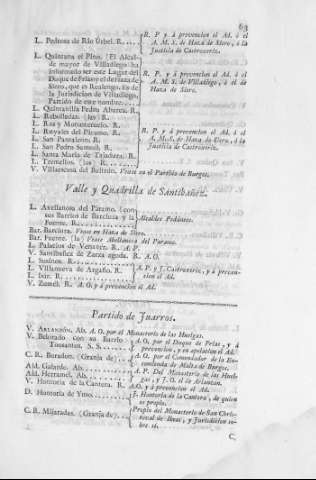 63
L. Pedrosa de Rio Urbel. R.....
R. P. y á prevencion el Ad. ó el
A. M. S. de Haza de Siero, ó la
Justicia de Castroxeriz.
L. Quintana el Pino. [El Alcal-
de mayor de Villadiego ha
informado ser este Lugar del
Duque de Frias; y el de Haza de
Siero, que es Realengo, es de
la Jurisdiccion de Villadiego,
Partido de este nombre.....
R. P. y á prevencion el Ad. ó el
A. M. S. de Villadiego, ó el de
Haza de Siero.
L. Quintanilla Pedro Abarca. R.
L. Rebolledas. (las) R.....
L. Ros y Monteneuro. R.....
L. Ruyales del Páramo. R.....
L. San Pantaleon. R.....
L. San Pedro Samuel. R.....
L. Santa María de Tajadura. R.
L. Tremellos. (los) R.....
R. P. y á prevencion el Ad. ó el
A. M. S. de Haza de Siero, ó la
Justicia de Castroxeriz.
V. Villanueva del Beltrán. Vease en el Partido de Burgos.
Valle y Quadrilla de Santibañez.
L. Avellanosa del Páramo. (con
sus Barrios de Barcluza y la
Fuente. R.....
Alcaldes Pedáneos.
Bar. Barcluza. Vease en Haza de Siero.
Bar. Fuente. (la) Vease Abellanosa del Paramo.
L. Palacios de Venaver. R. A. P.
V. Santibañez de Zarza aguda. R. A. O.
L. Susinos. R.....
L. Villanueva de Argaño. R.
L. Isar. R.....
A. P. y J. Castroxeriz, y á preven-
cion el Ad.
V. Zumel. R. A. O. y á prevencion el Ad.
Partido de Juarros.
V. Arlanzón. Ab. A. O. por el Monasterio de las Huelgas.
V. Belorado con su Barrio
Tosantos. S. S.....
A. O. por el Duque de Frias, y á
prevencion, y en apelacion el Ad.
C. R. Buradon. (Granja de)...
A. O. por el Comendador de la En-
comienda de Malta de Burgos.
Ald. Galarde. Ab.....
Ald. Herramel. Ab.....
A. P. Del Monasterio de las Huel-
gas, y J. O. el de Arlanzon.
V. Hontoria de la Cantera. R. A. O. y á prevencion el Ad.
D. Hontoria de Ymo.....
J. Hontoria de la Cantera, de quien
es propio.
C. R. Mijaradas. (Granja de)...
Propio del Monasterio de San Chris-
toval de Ibeas, y Jurisdiccion so-
bre sí.
C,